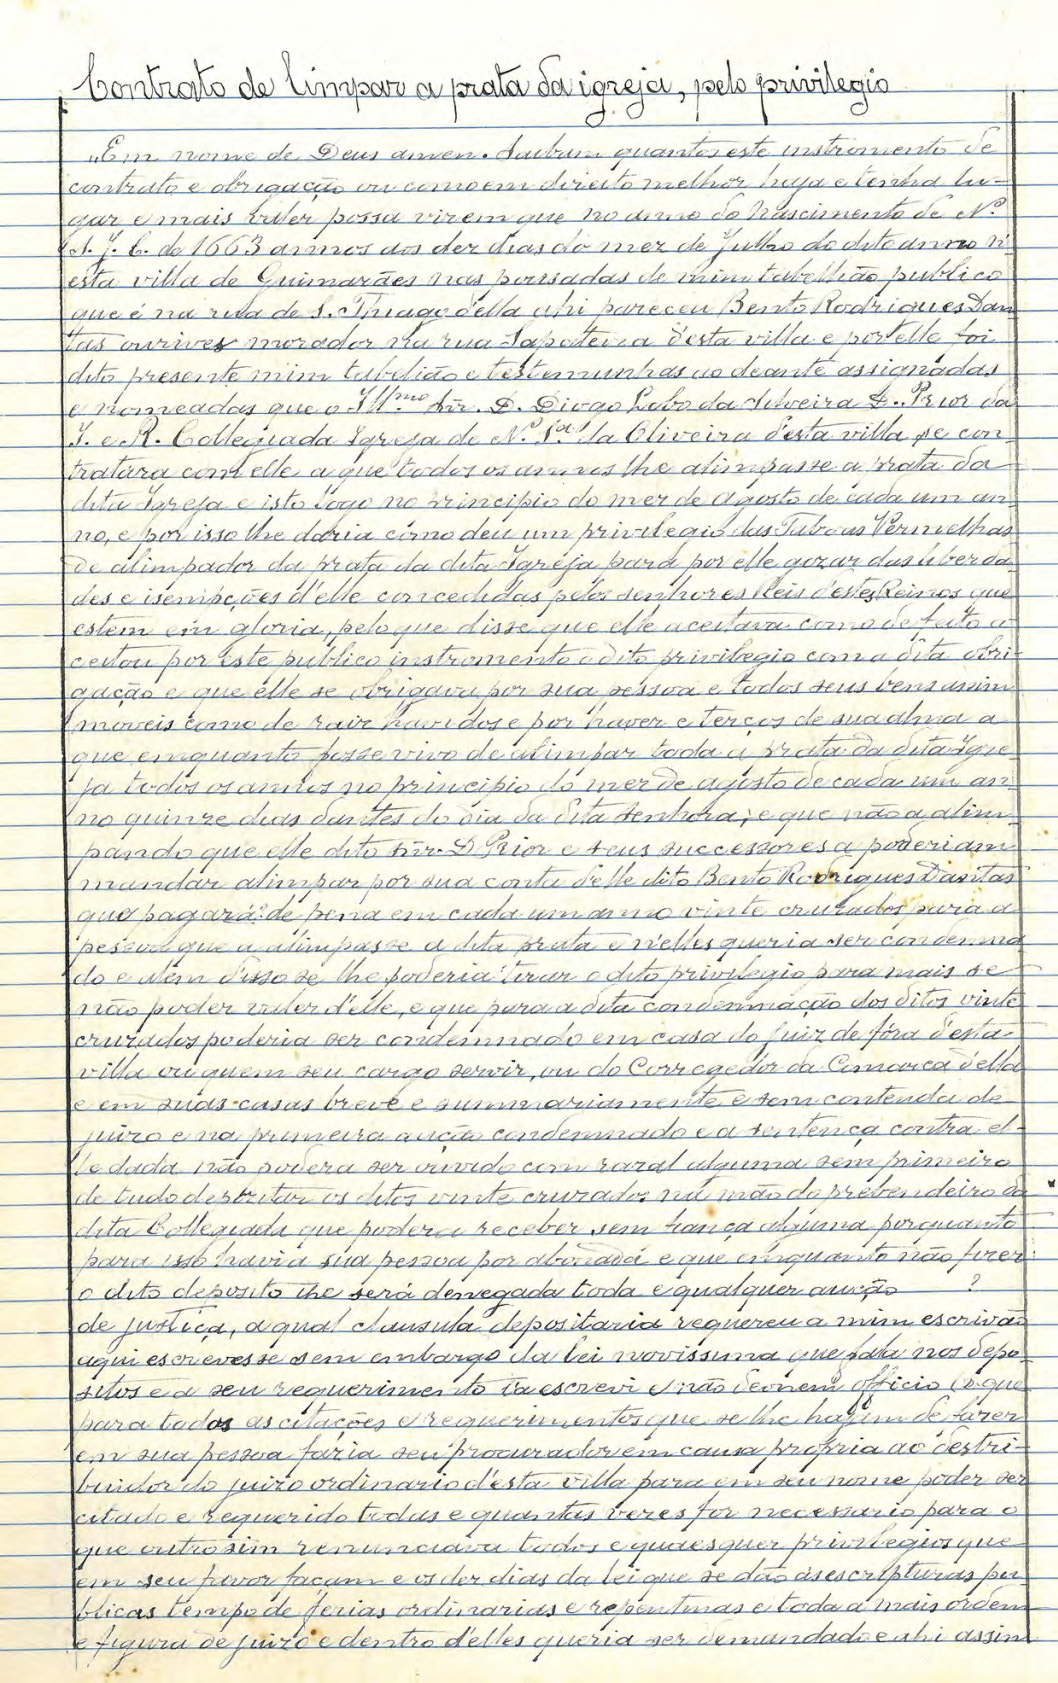 Contrato de limpar a prata da igreja, pelo privilegio
"Em nome de Deus amen. Saibam quantos este instromento de
contrato e obrigação ou como em direito melhor haja e tenha lu-
gar e mais valer possa virem que no anno do Nascimento de N.º
S. J. C. de 1663 annos aos dez dias do mez de Julho do dito anno n'
esta villa de Guimarães nas pousadas de mim tabellião publico
que é na rua de S. Thiago d'ella ahi pareceu Bento Rodrigues Dan
tas ourives morador na rua Sapateira d'esta villa e por elle foi
dito presente mim tabelião e testemunhas ao deante assignadas
e nomeadas que o Ill.mo Snr. D. Diogo Lobo da Silveira D. Prior da
I. e R. Collegiada Igreja de N.ª S.ª da Oliveira d'esta villa se con
tratara com elle a que todos os annos lhe alimpasse a prata da
dita Igreja e isto logo no principio do mez de Agosto de cada um an
no, e por isso lhe daria como deu um privilegio das Taboas Vermelhas
de alimpador da prata da dita Igreja para por elle gozar das liberda
des e isempções d'elle concedidas pelos senhores Reis d'estes Reinos que
estem em gloria, pelo que disse que elle aceitava como de feito a
ceitou por este publico instromento o dito privilegio com a dita obri-
gação e que elle se obrigava por sua pessoa e todos seus bens assim
moveis como de raiz havidos e por haver e terços de sua alma a
que emquanto fosse vivo de alimpar toda a prata da dita Igre
ja todos os annos no principio do mez de agosto de cada um an
no quinze dias dantes do dia da dita Senhora; e que não a alim
pando que elle dito snr. D Prior e seus successores a poderiam
mandar alimpar por sua conta d'elle dito Bento Rodrigues Dantas
que pagará de pena em cada um anno vinte cruzados para a
pessoa que a alimpasse a dita prata e n'elles queria ser condemna
do e alem d'isso se lhe poderia tirar o dito privilegio para mais se
não poder valer d'elle, e que para a dita condemnação dos ditos vinte
cruzados poderia ser condemnado em casa do juiz de fóra d'esta
villa ou quem seu cargo servir, ou do Corregedor da Comarca d'ella
e em suas casas breve e summariamente e sem contenda de
juizo e na primeira aução condemnado e a sentença contra el-
le dada não podera ser ouvido com razal alguma sem primeiro
de tudo depositar os ditos vinte cruzados na mão do prebendeiro da
dita Collegiada que podera receber sem fiança alguma porquanto
para isso havia sua pessoa por abonada e que emquanto não fizer
o dito deposito lhe será denegada toda e qualquer aucção ?
de justiça, a qual clausula depositaria requereu a mim escrivão
aqui escrevesse sem embargo da lei novissima que fala nos depo
sitos e a seu requerimento la escrevi e não de meu officio e que
para todas as citações e requerimentos que se lhe hajam de fazer
em sua pessoa faria seu procurador em causa propria ao destri-
buidor do juizo ordinario d'esta villa para em seu nome poder ser
citado e requerido todas e quantas vezes for necessario para o
que outrosim renunciava todos e quaesquer privilegios que
em seu favor façam e os dez dias da lei que se dão ás escripturas pu
blicas tempo de ferias ordinarias e repentinas e toda a mais ordem
e figura de juizo e dentro d'elles queria ser demandado e ahi assim